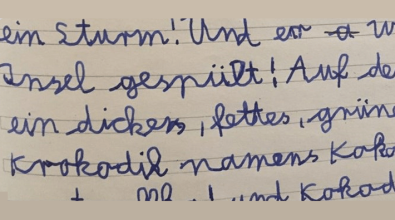 ein Sturm! Und er a w
Insel gespült! Auf de
ein dickers, fettes, grün
Krokodil namens Koko
und Kokod